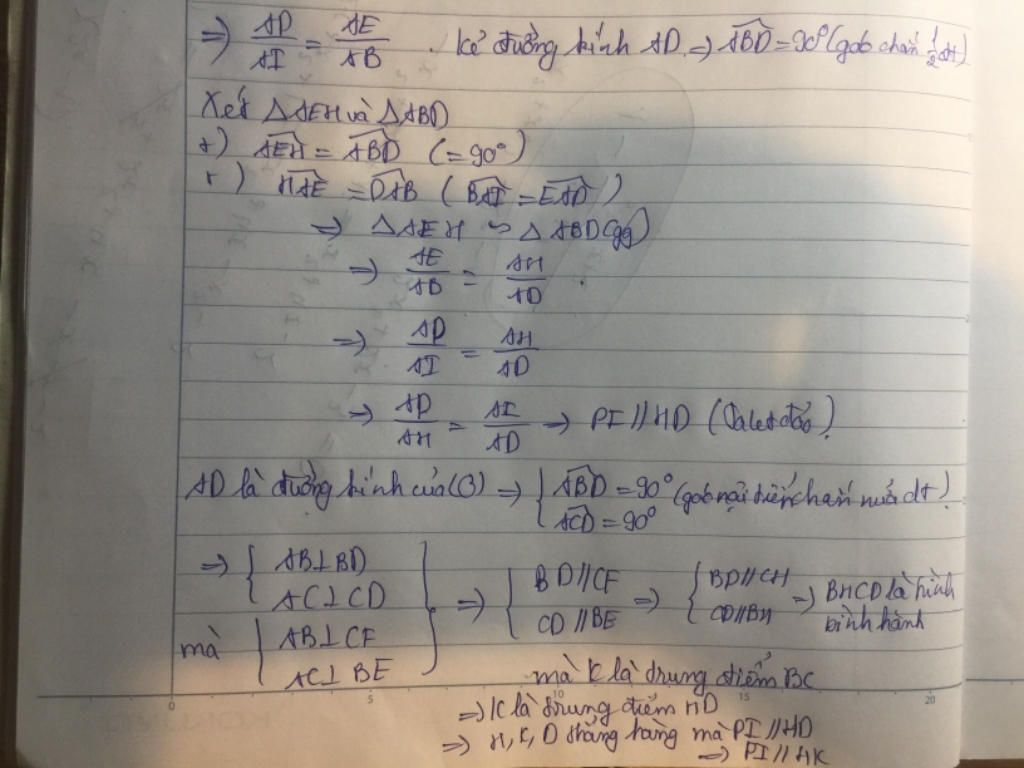 ⇒) AP/AI = AE/AB . Kẻ đường kính AD ⇒ ABD = 90° (góc chắn 1/2 đt)
Xét △AEH và △ABD
+) AEH = ABD (= 90°)
+) HAE = DAB (BAI = EAD)
⇒ △AEH ∽ △ABD (gg)
⇒ AE/AB = AH/AD
⇒ AP/AI = AH/AD
⇒ AP/AH = AI/AD ⇒ PI // HD (Talet đảo)
AD là đường kính của (O) ⇒ { ABD = 90° (góc nội tiếp chắn nửa đt)
ACD = 90°
⇒ { AB⊥BD
AC⊥CD
mà { AB⊥CF
AC⊥BE
⇒ { BD//CF
CD//BE
⇒ { BD//CH
CD//BH
⇒ BHCD là hình
bình hành
mà K là trung điểm BC
⇒ K là trung điểm HD
⇒ H, K, D thẳng hàng mà PI // HD
⇒ PI // HK
0 5 10 15 20